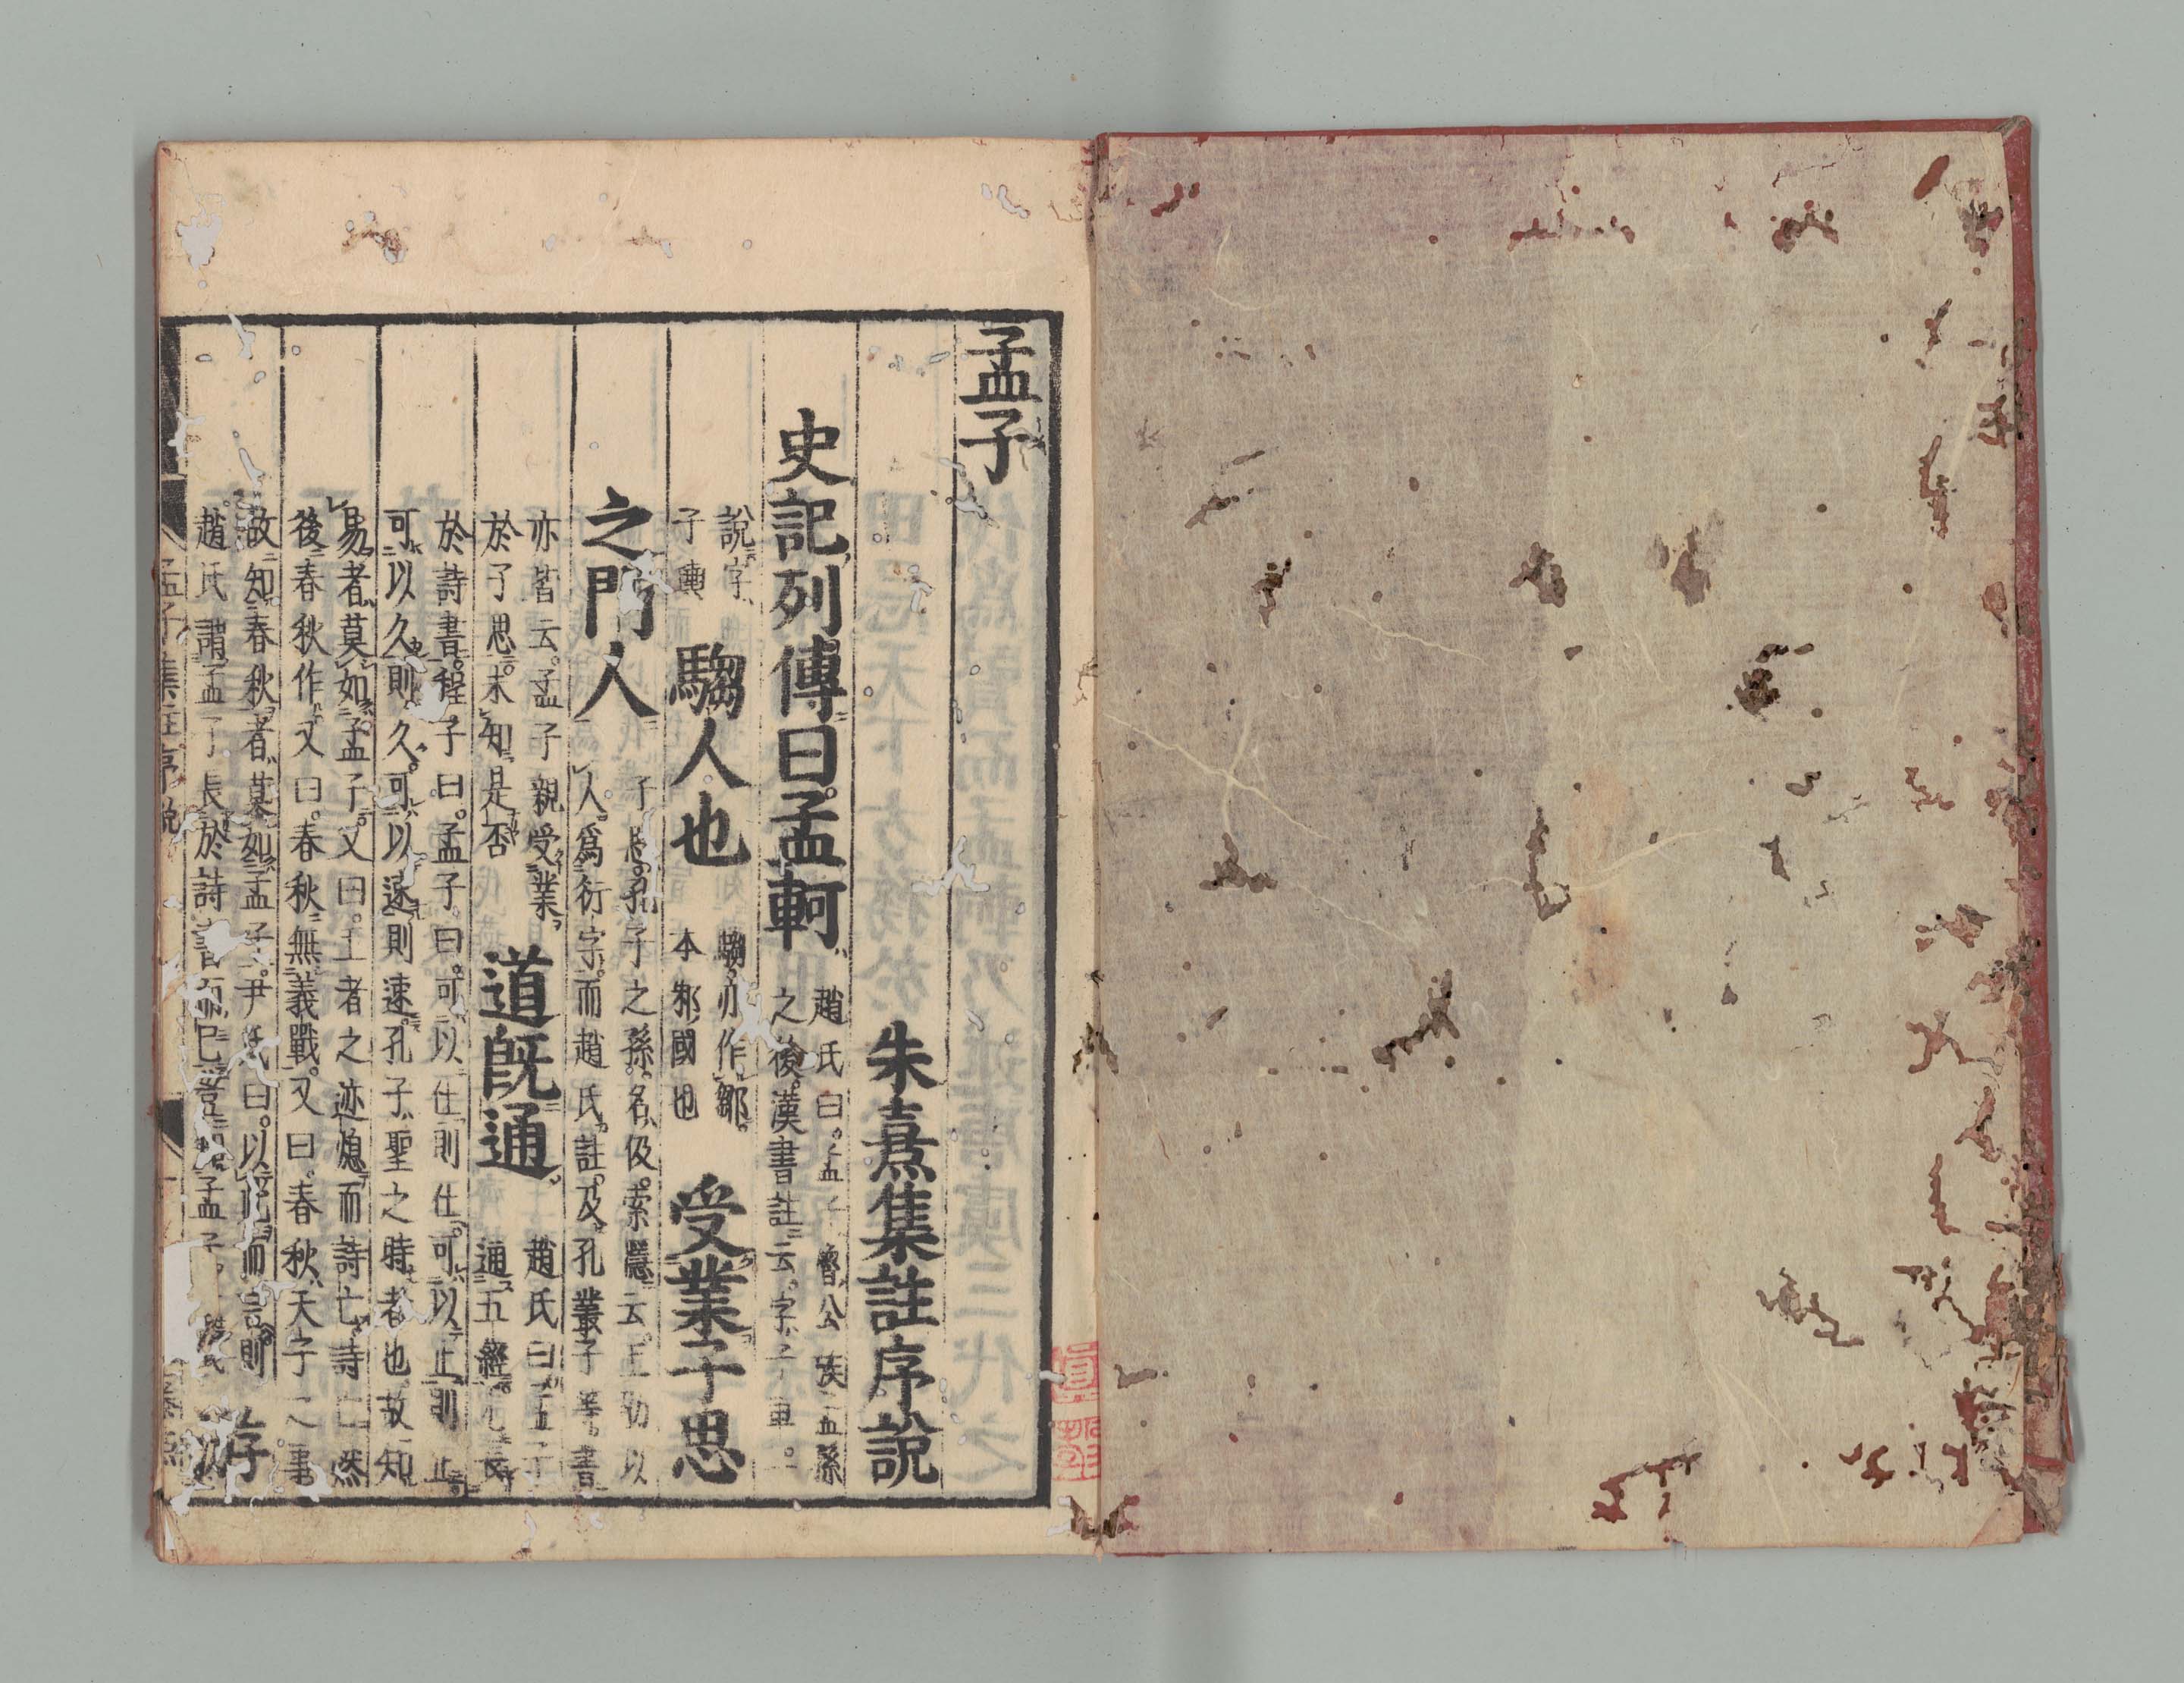 孟子
朱熹集註序說
史記列傳曰孟軻 趙氏曰孟子魯公族孟孫
之後漢書註云字子車一
說字
子輿 騶人也 騶亦作鄒
本邾國也 受業子思
之門人 子思孔子之孫名伋索隱云王劭以
人爲衍字而趙氏註及孔叢子等書
亦皆云孟子親受業
於子思未知是否 道旣通 趙氏曰孟子
通五經尤長
於詩書程子曰孟子曰可以仕則仕可以止則止
可以久則久可以速則速孔子聖之時者也故知
易者莫如孟子又曰王者之迹熄而詩亡詩亡然
後春秋作又曰春秋無義戰又曰春秋天子之事
故知春秋者莫如孟子尹氏曰以此而言則
趙氏謂孟子長於詩書而已豈知孟子 游
孟子集註序說